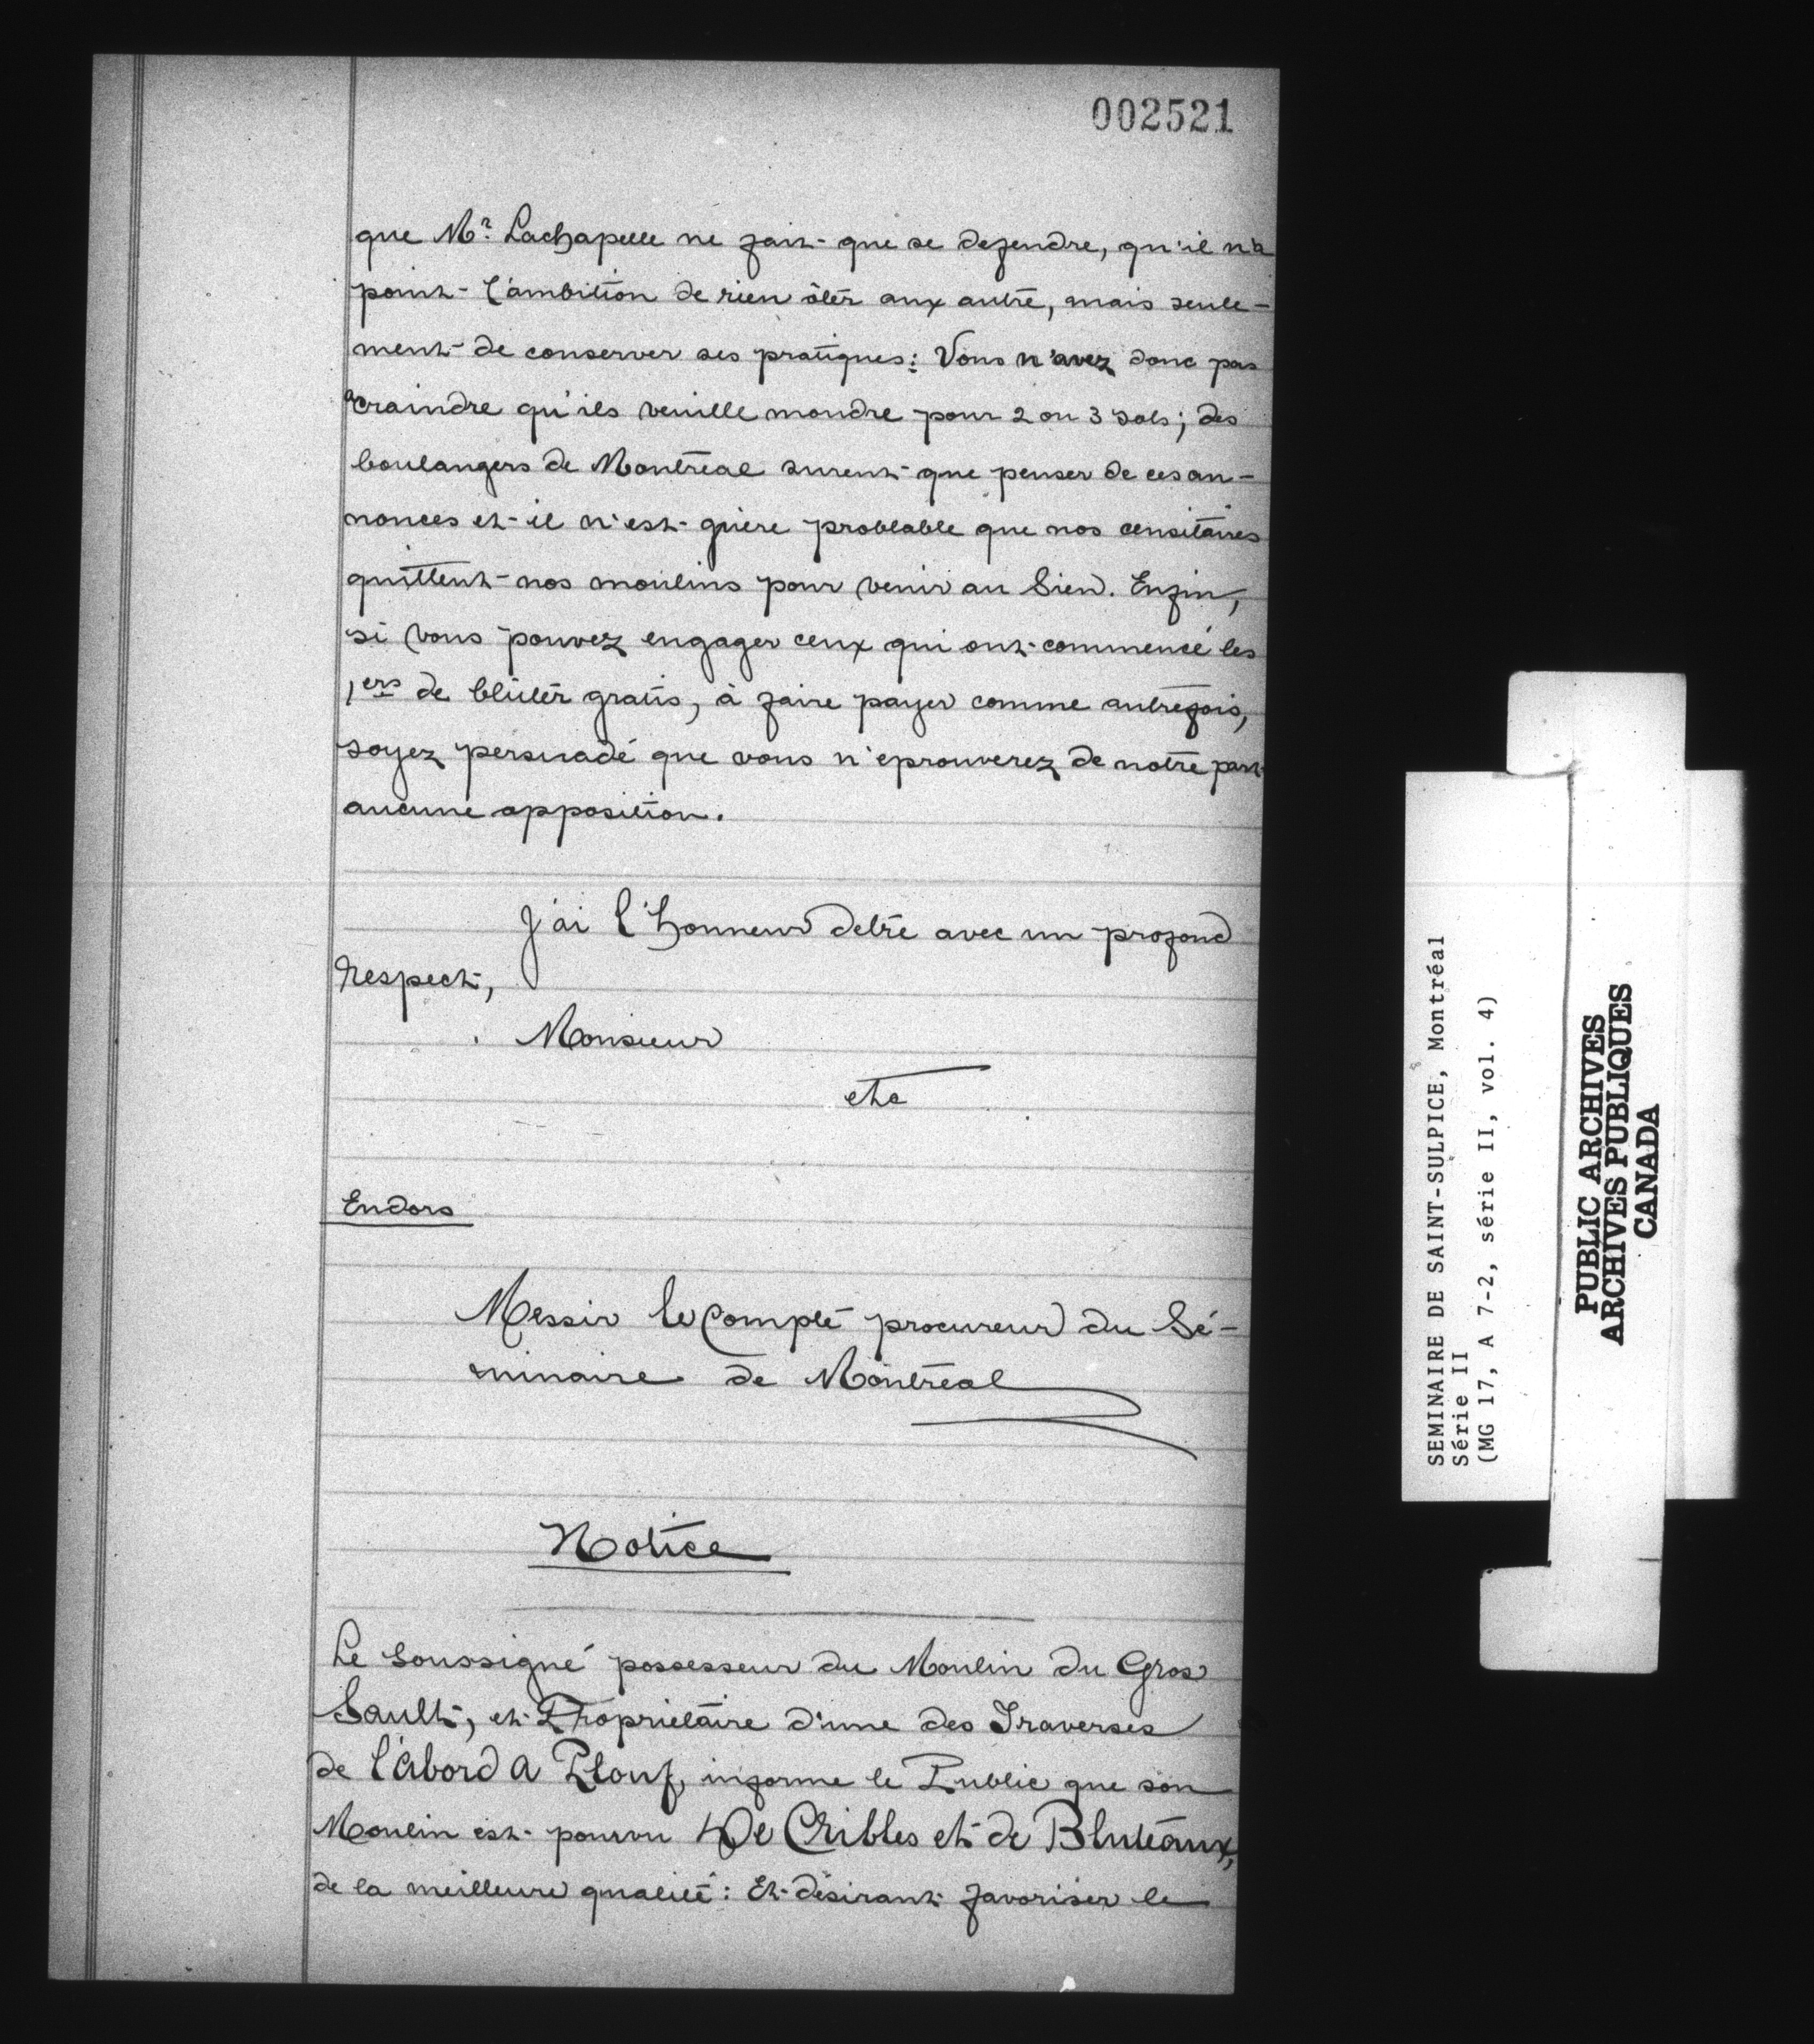 002521
que Mr. Lachapelle ne fait que se defendre, qu'il n'a
point l'ambition de rien ôter aux autre, mais seule-
ment de conserver ses pratiques: Vous n'avez donc pas
a craindre qu'ils veuille moudre pour 2 ou 3 sols; des
boulangers de Montreal surent que penser de ces an-
nonces et il n'est guère problable que nos censitaires
quittent nos moulins pour venir au Sien. Enfin,
si vous pouvez engager ceux qui ont commencé les
1ers de blûter gratis, à faire payer comme autrefois,
soyez persuadé que vous n'eprouverez de notre part
aucune opposition.
J'ai l'honneur detre avec un profond
respect,
Monsieur
etc
Endors
Messir le Compte procureur du Sé-
minaire de Montreal
Notice
Le Soussigné possesseur du Moulin du Gros
Sault, et Proprietaire d'une des Traverses
de l'Abord a Plouf, informe le Public que son
Moulin est pourvu De Cribles et de Bluteaux,
de la meilleure qualité: Et désirant favoriser le
SEMINAIRE DE SAINT-SULPICE, Montréal
Série II
(MG 17, A 7-2, série II, vol. 4)
PUBLIC ARCHIVES
ARCHIVES PUBLIQUES
CANADA